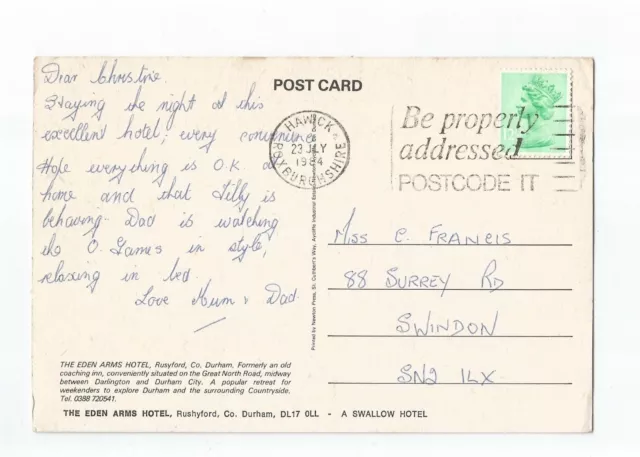 Dear Christine
Staying the night at this
excellent hotel, every convenience.
Hope everything is O.K at
home and that Tilly is
behaving. Dad is watching
the O. Games in style,
relaxing in bed.
Love Mum & Dad.
THE EDEN ARMS HOTEL, Rusyford, Co. Durham. Formerly an old
coaching inn, conveniently situated on the Great North Road, midway
between Darlington and Durham City. A popular retreat for
weekenders to explore Durham and the surrounding Countryside.
Tel. 0388 720541.
THE EDEN ARMS HOTEL, Rushyford, Co. Durham, DL17 0LL - A SWALLOW HOTEL
POST CARD
HAWICK
23 JLY
1984
ROXBURGHSHIRE
Be properly
addressed
POSTCODE IT
Printed by Newton Press, St. Cuthbert's Way, Aycliffe Industrial Estate
Miss C. FRANCIS
88 SURREY RD
SWINDON
SN2 1LX